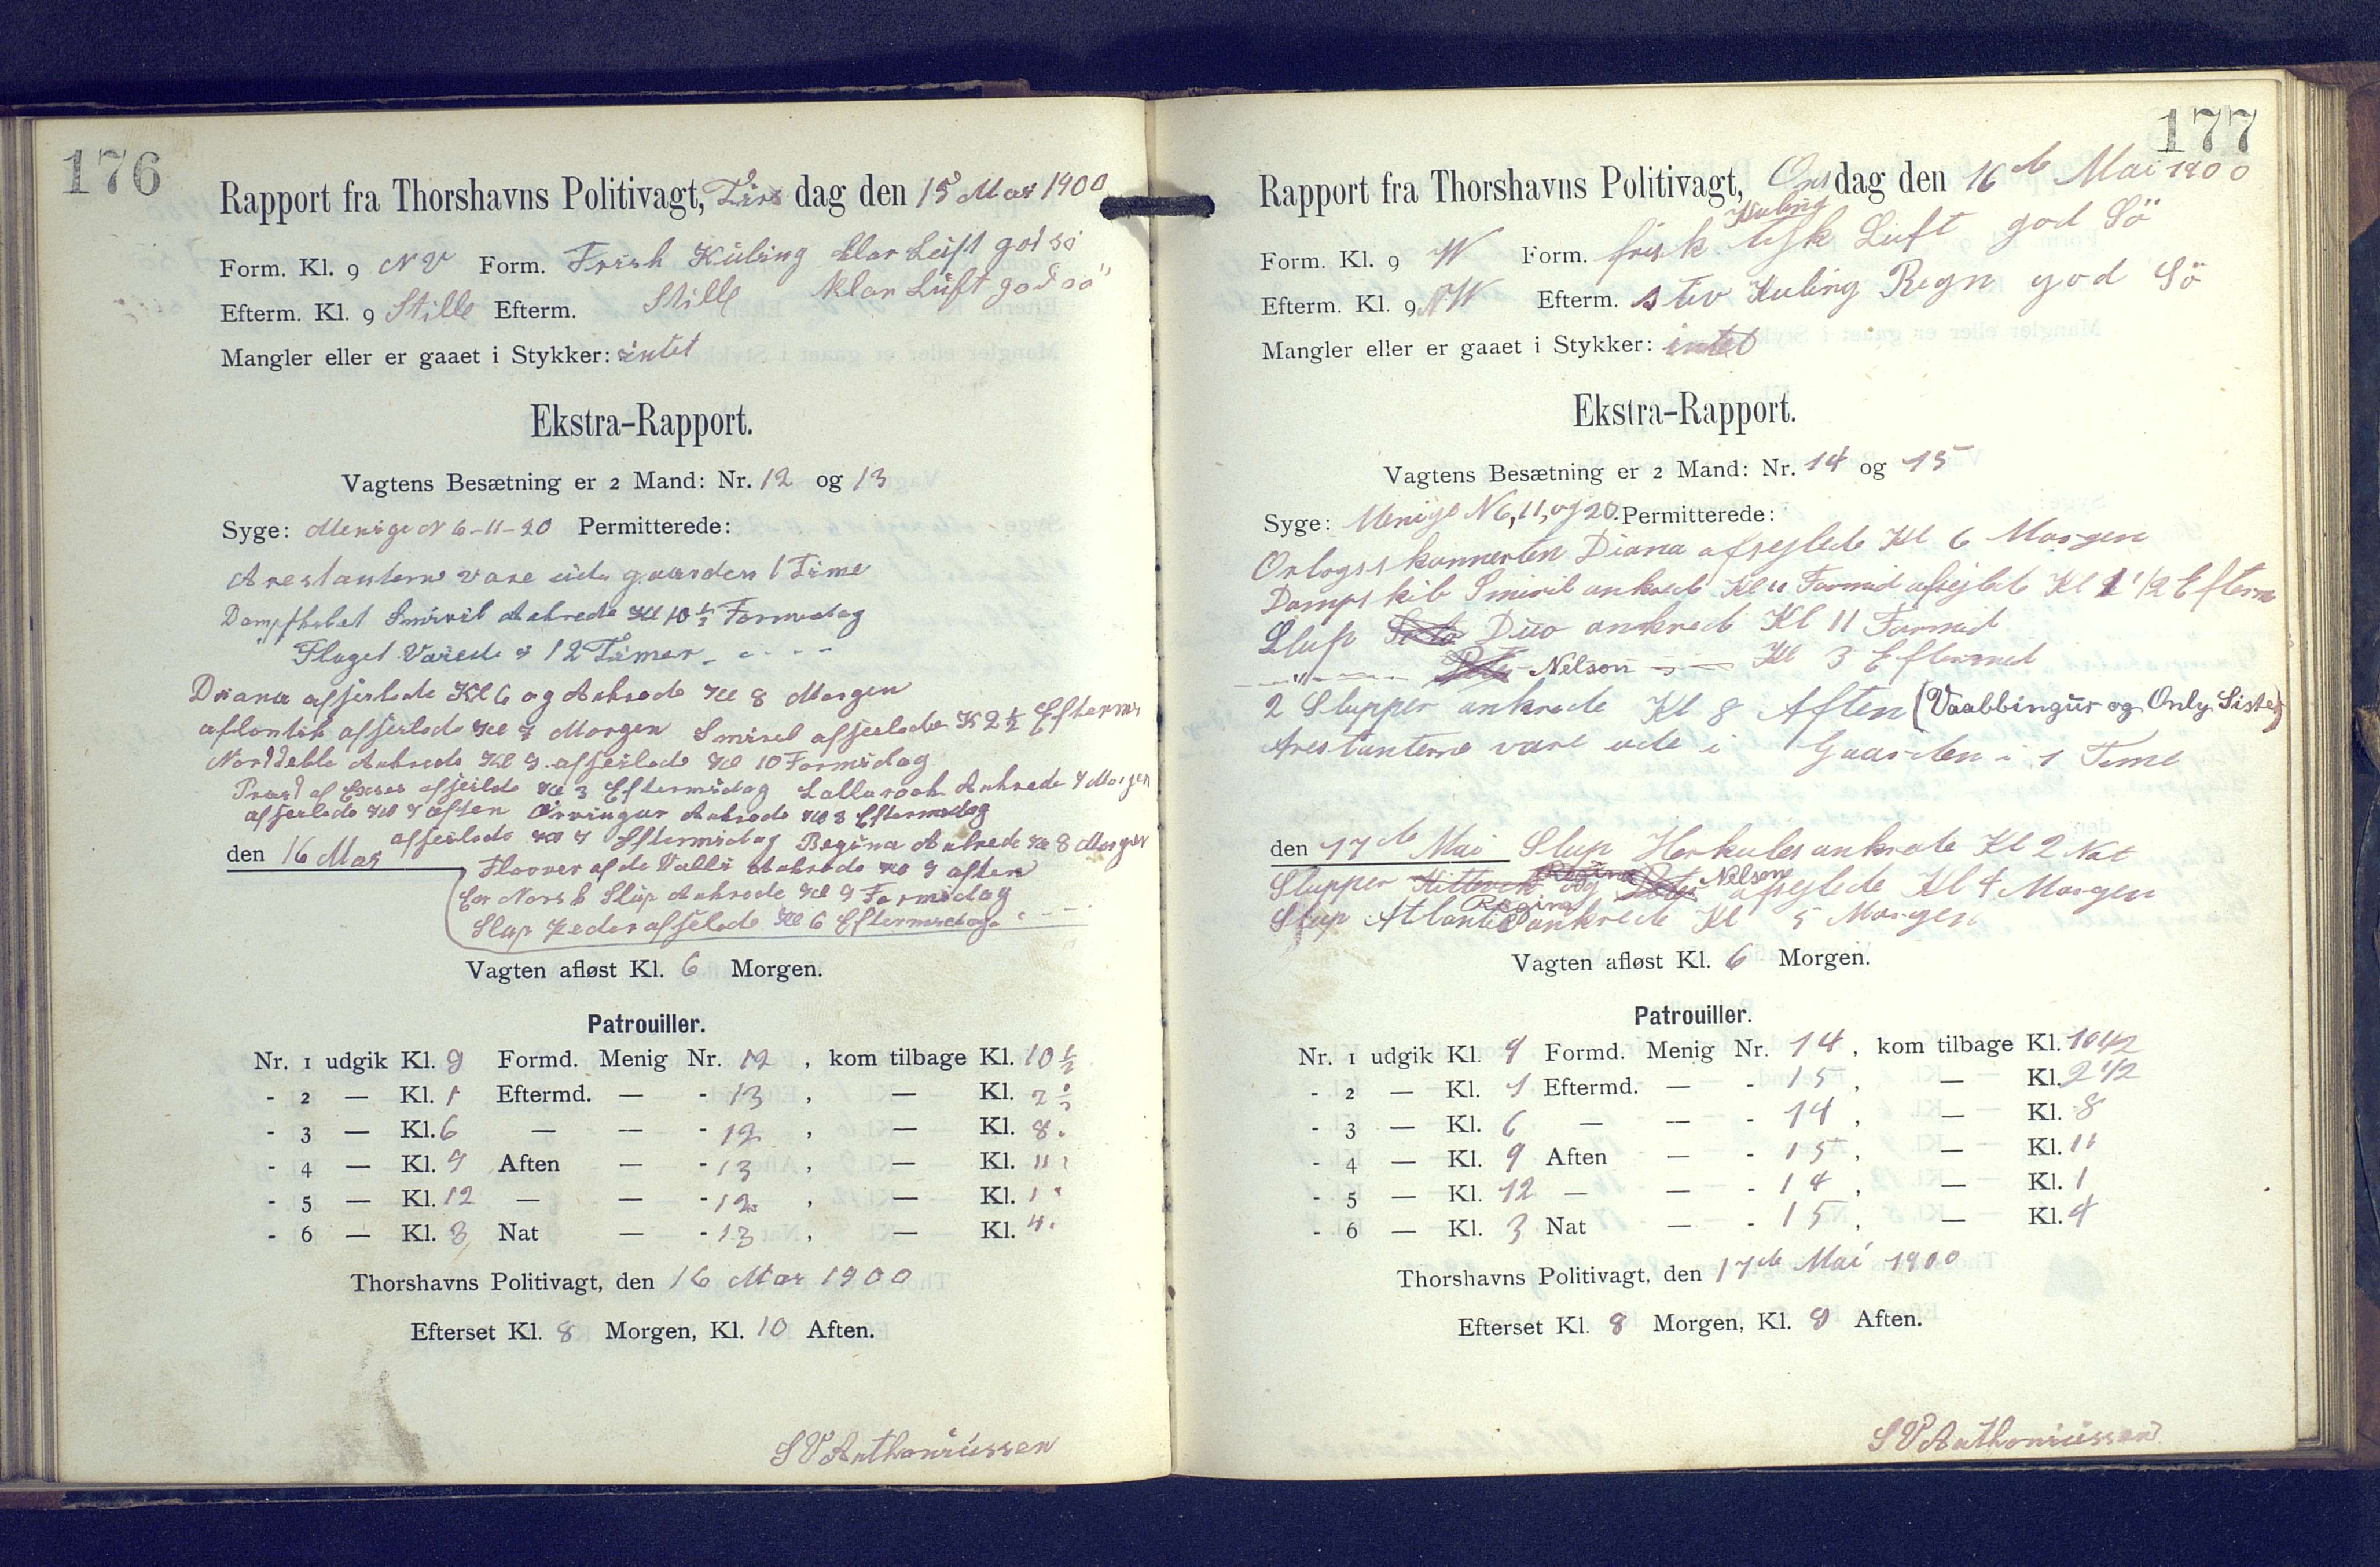 176
Rapport fra Thorshavns Politivagt, Tirsdag den 15 Mai 1900
Form. Kl. 9 NV Form. Frisk Kuling klar Luft god sö
Efterm. Kl. 9 Stille Efterm. Stille klar Luft god sö
Mangler eller er gaaet i Stykker: intet
Ekstra-Rapport.
Vagtens Besætning er 2 Mand: Nr. 12 og 13
Syge: Menige N 6-11-20 Permitterede:
Arestanterne vare ude gaarden 1 Time
Dampskibet Smiril Ankrede Kl 10½ Formidag
Flaget Varede 12 Timer
Diana afseilede Kl 6 og Ankrede Kl 8 Morgen
atlontik afseilede Kl 7 Morgen Smiril afseilede K 2½ Efterm
Ankrede Kl 9 afseilede Kl 10 Formidag
afseilde Kl 3 Eftermidag Lallarook Ankrede 4 Morgen
afseilede Kl 7 aften Örvingur Ankrede Kl 3 Eftermidag
afseilede Kl 7 Eftermidag Regina Ankrede Kl 8 Morgen
den 16 Mai
Ankrede Kl 9 aften
En Norsk Slup Ankrede Kl 9 Formidag
Slup Peder afseilede Kl 6 Eftermidag
Vagten afløst Kl. 6 Morgen.
Patrouiller.
Nr. 1 udgik Kl. 9 Formd. Menig Nr. 12 , kom tilbage Kl. 10½
- 2 — Kl. 1 Eftermd. — - 13 , — Kl. 2½
- 3 — Kl. 6 — — - 12 , — Kl. 8
- 4 — Kl. 9 Aften — - 13 , — Kl. 11
- 5 — Kl. 12 — — - 12 , — Kl. 1
- 6 — Kl. 3 Nat — - 13 , — Kl. 4
Thorshavns Politivagt, den 16 Mai 1900
Efterset Kl. 8 Morgen, Kl. 10 Aften.
S V Anthoniussen
177
Rapport fra Thorshavns Politivagt, Onsdag den 16de Mai 1900
Form. Kl. 9 W Form. frisk Kuling tysk Luft god Sö
Efterm. Kl. 9 NW Efterm. stiv Kuling Regn god Sö
Mangler eller er gaaet i Stykker: intet
Ekstra-Rapport.
Vagtens Besætning er 2 Mand: Nr. 14 og 15
Syge: Menige N 6, 11, og 20. Permitterede:
Orlogsskonnerten Diana afsejlede Kl 6 Morgen
Dampskib Smiril ankrede Kl 11 Formid afsejlede Kl 1 1/2 Efterm
Slup Duo ankrede Kl 11 Formid
— " — Nelson — — Kl 3 Eftermid
2 Slupper ankrede Kl 8 Aften (Vaabbingur og Only Sister)
Arestanterne vare ude i Gaarden i 1 Time
den 17de Mai Slup Herkules ankrede Kl 2 Nat
Slupper Kittevek og Regina Peter Nelson afsejlede Kl 4 Morgen
Slup Atlantic Regina ankrede Kl 5 Morgen
Vagten afløst Kl. 6 Morgen.
Patrouiller.
Nr. 1 udgik Kl. 9 Formd. Menig Nr. 14 , kom tilbage Kl. 10 1/2
- 2 — Kl. 1 Eftermd. — - 15 , — Kl. 2 1/2
- 3 — Kl. 6 — — - 14 , — Kl. 8
- 4 — Kl. 9 Aften — - 15 , — Kl. 11
- 5 — Kl. 12 — — - 14 , — Kl. 1
- 6 — Kl. 3 Nat — - 15 , — Kl. 4
Thorshavns Politivagt, den 17de Mai 1900
Efterset Kl. 8 Morgen, Kl. 9 Aften.
S V Anthoniussen